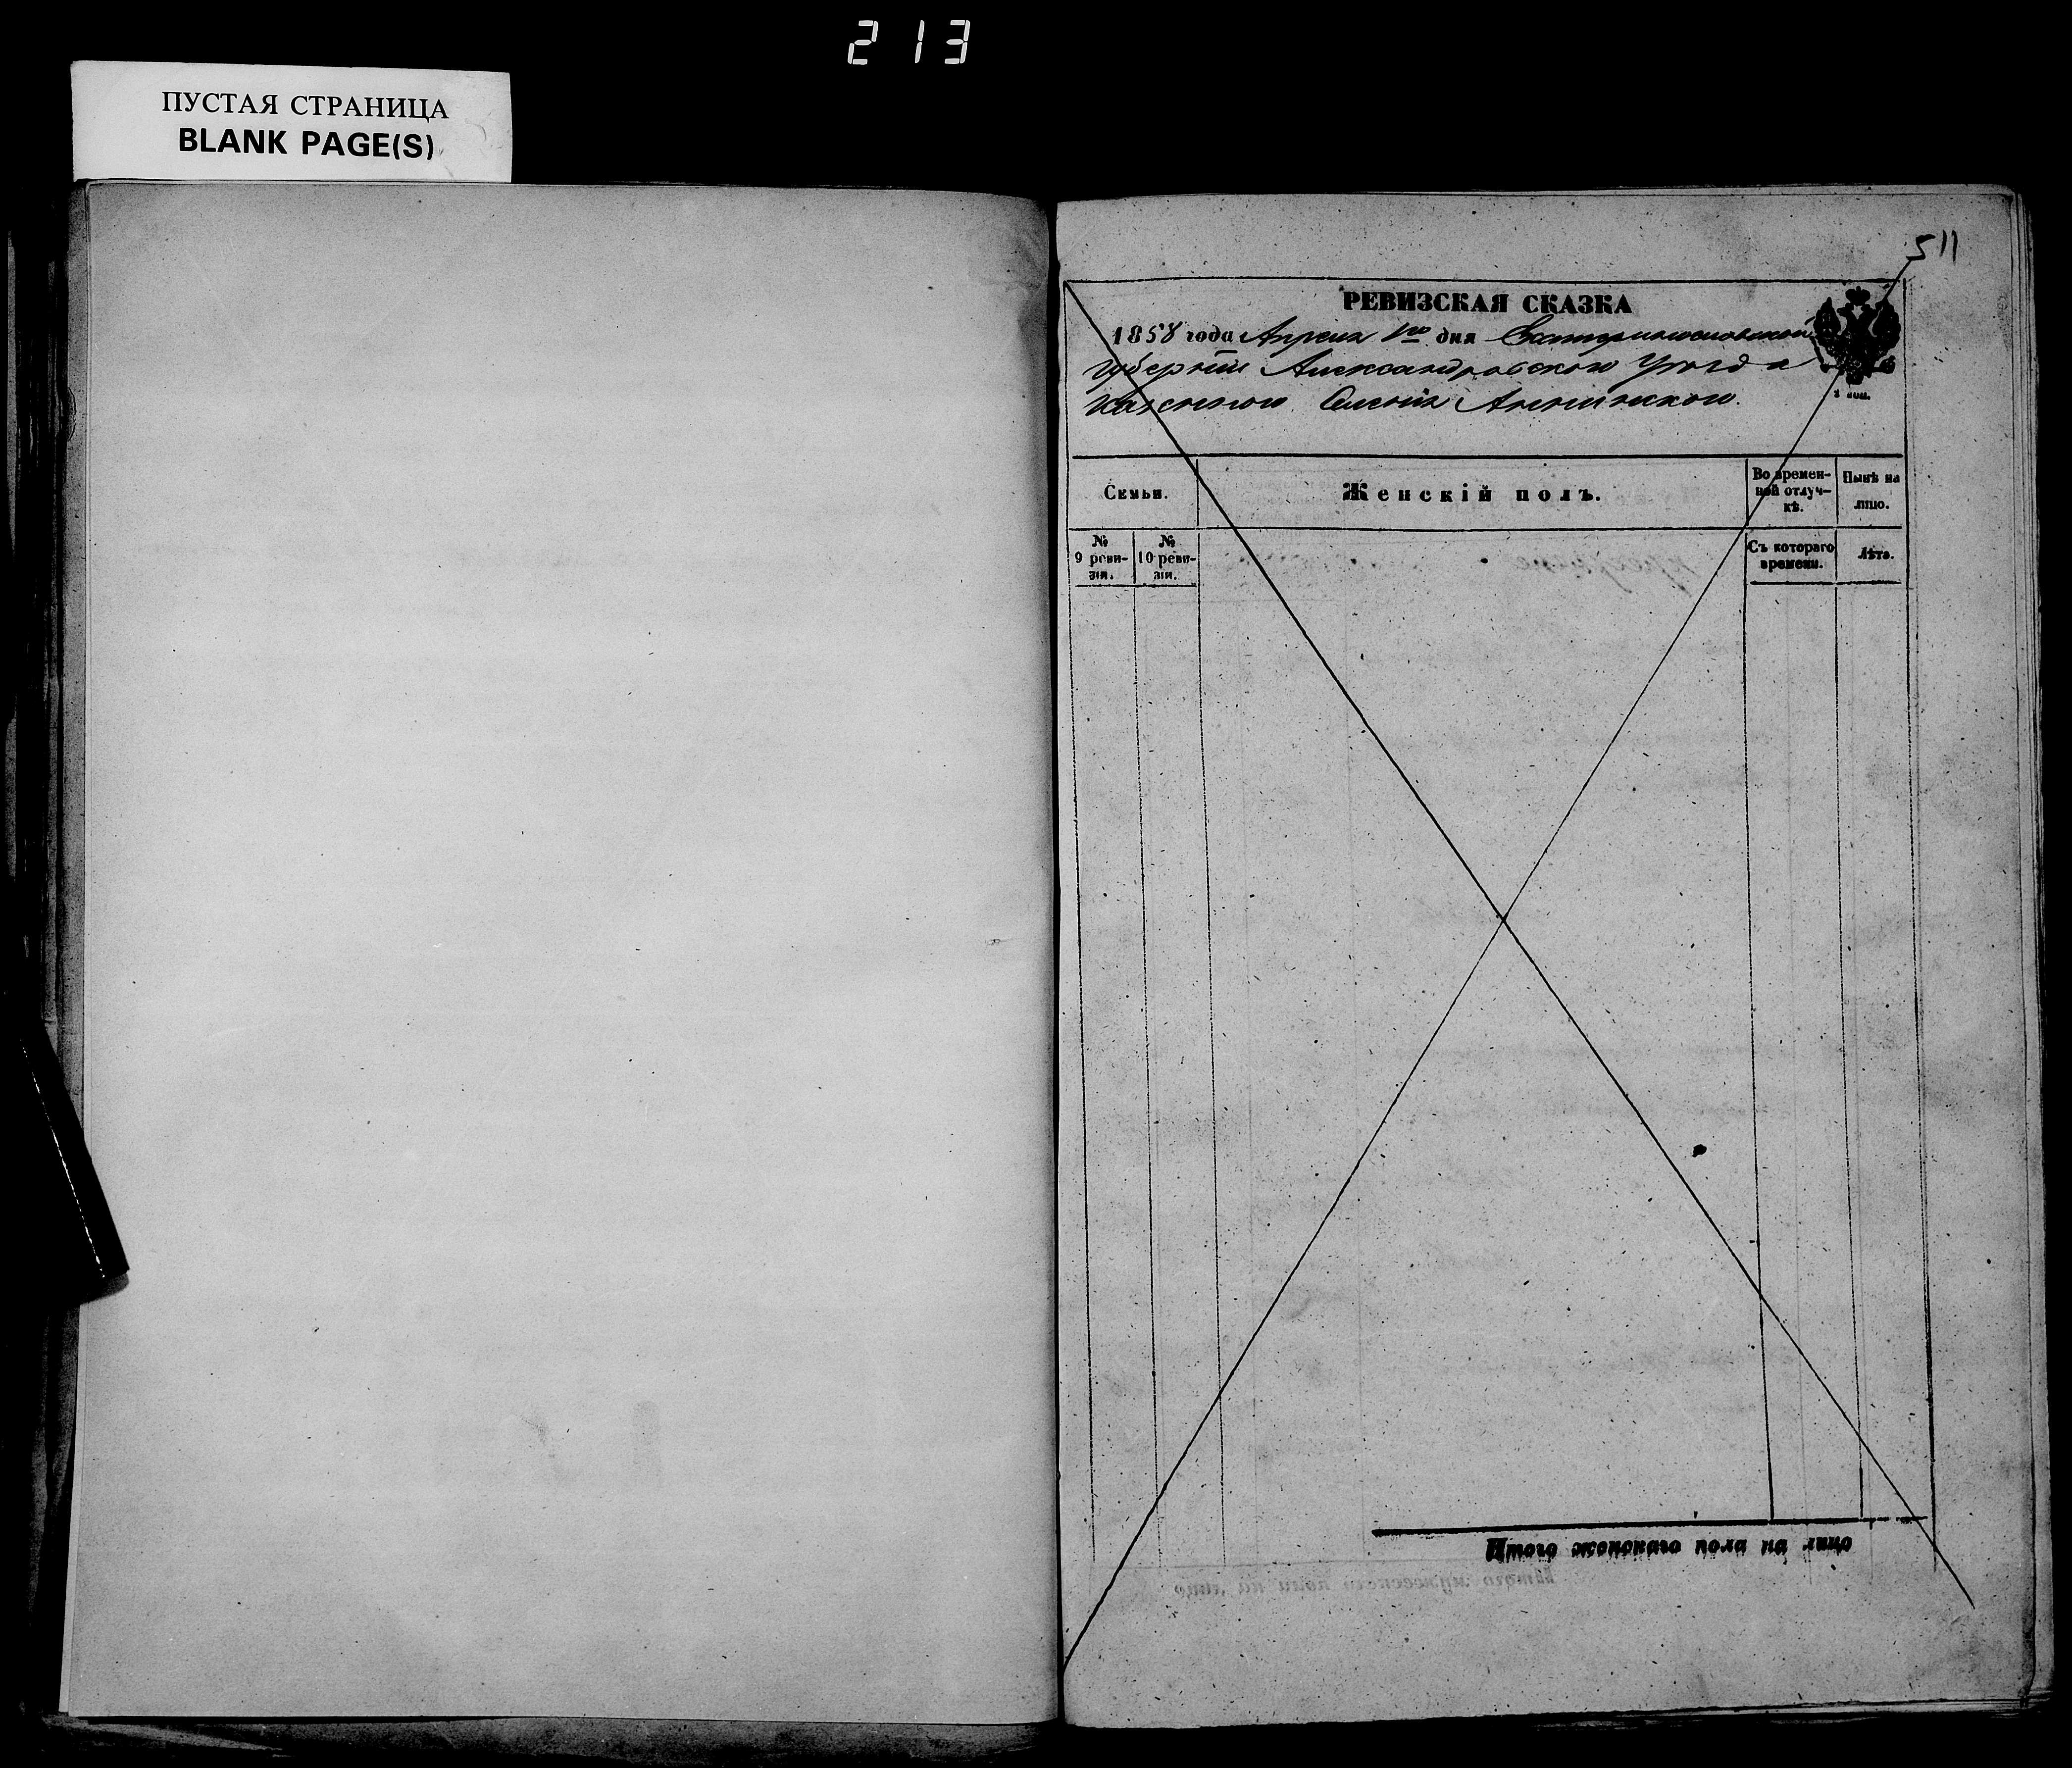 213
ПУСТАЯ СТРАНИЦА
BLANK PAGE(S)
511
РЕВИЗСКАЯ СКАЗКА
1858 года Апреля 1го дня Екатеринославской
губернiи Александровского уезда
казенного Селенiя
1 коп.
Семьи.
Женскiй полъ.
Во времен-
ной отлуч-
кѣ.
Нынѣ на
лицо.
№
9 реви-
зiи.
№
10 реви-
зiи.
Съ котораго
времени.
Лѣта.
Итого женскаго пола на лицо